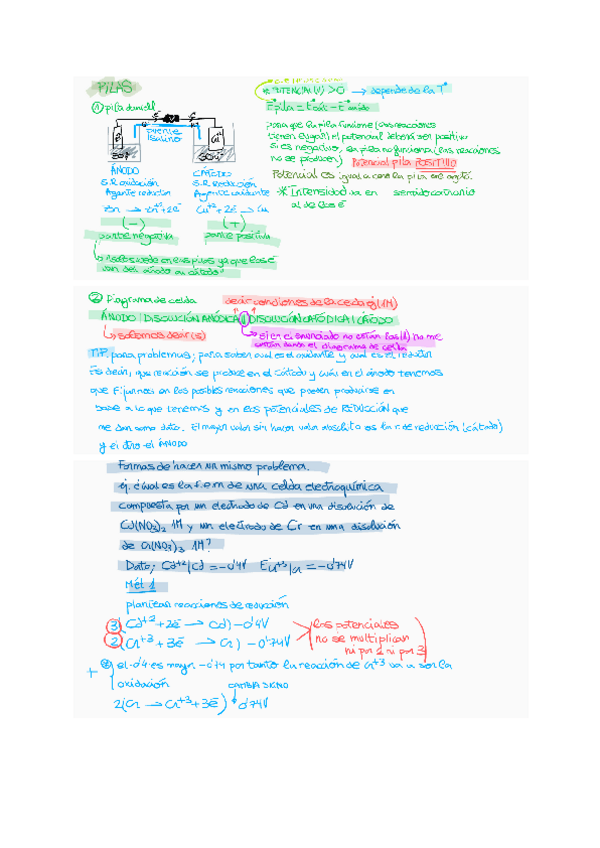 PILAS
① pila daniell
puente
salino
ÁNODO CÁTODO
S.R oxidación S.R Reducción
Agente reductor Agente oxidante
Zn → Zn⁺²+2ē Cu⁺²+2ē → Cu
(-) (+)
parte negativa parte positiva
van del ánodo al cátodo
POTENCIAL(V) >0 → depende de la Tª
Epila = E cátc - E ánodo
para que la pila funcione (las reacciones
tienen q'lugar) el potencial deberá ser positivo
si es negativo, la pila no funciona (las reacciones
no se producen) Potencial pila POSITIVO
* Intensidad va en sentido contrario
al de los ē
② Diagrama de celda decir condiciones de la celda ej (1M)
ÁNODO | DISOLUCIÓN ANÓDICA || DISOLUCIÓN CATÓDICA | CÁTODO
↳ sabemos decir (s) ↳ si en el enunciado no están las (||) no me
están dando el diagrama de celda
TIP. para problemas; para saber cual es el oxidante y cual es el reductor
Es decir, que reacción se produce en el cátodo y cuál en el ánodo tenemos
que fijarnos en las posibles reacciones que pueden producirse en
base a lo que tenemos y en los potenciales de REDUCCIÓN que
me dan como dato. El mayor valor sin hacer valor absoluto es la r de reducción (cátodo)
y el otro el ÁNODO
Formas de hacer un mismo problema.
ej. ¿cuál es la f.e.m de una celda electroquímica
compuesta por un electrodo de Cd en una disolución de
Cd(NO₃)₂ 1M y un electrodo de Cr en una disolución
de Cr(NO₃)₃ 1M?
Dato; Cd⁺²|Cd = -0'4V E Cr⁺³|Cr = -0'74V
Mét 1
plantear reacciones de reducción
3(Cd⁺² + 2ē → Cd) -0'4V
2(Cr⁺³ + 3ē → Cr) -0'74V
los potenciales
no se multiplican
ni por 2 ni por 3
+ el -0'4 es mayor -0'74 por tanto la reacción de Cr⁺³ va a ser la
oxidación CAMBIA SIGNO
2(Cr → Cr⁺³+3ē) 0'74V